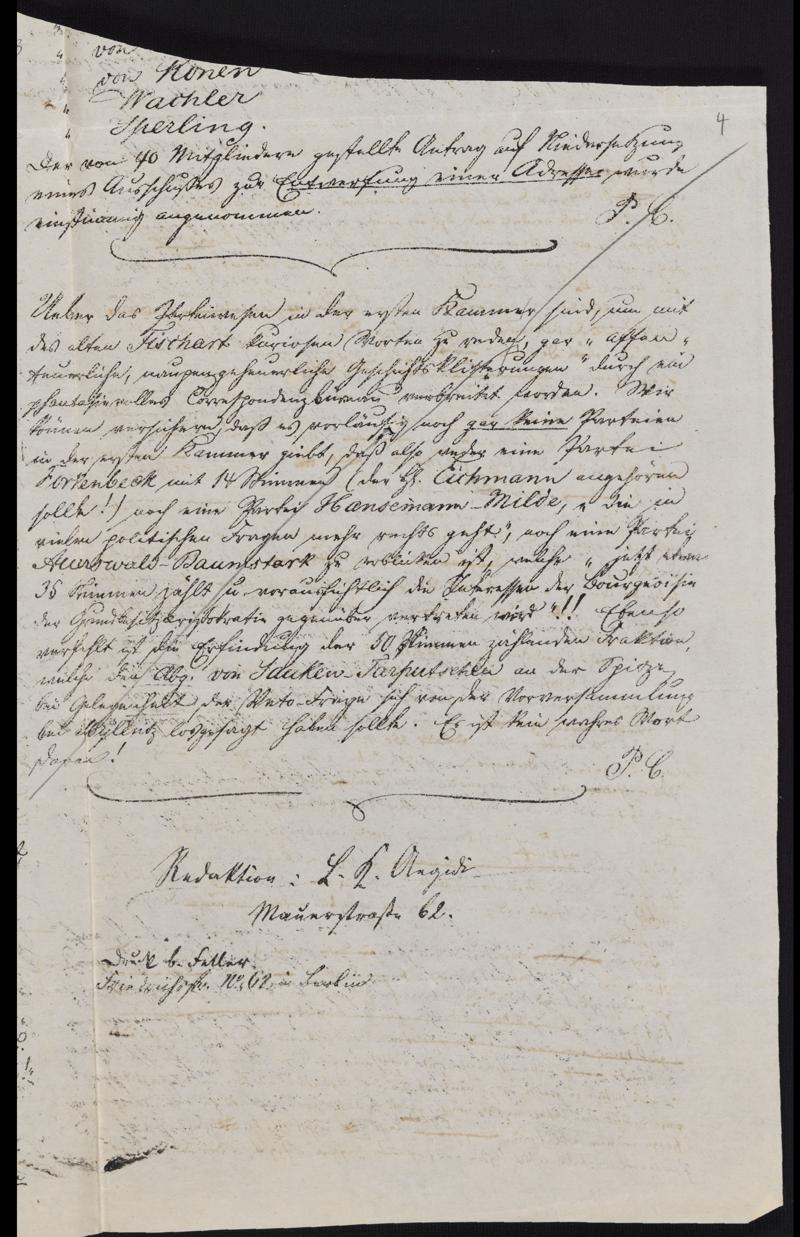 von
von Ronen
Wachler
Sperling.
4
Der von 40 Mitgliedern gestellte Antrag auf Niedersetzung
eines Ausschußes zur Entwerfung einer Adresse wurde
einstimmig angenommen.
P. C.
Ueber das Parteiwesen in der ersten Kammer sind, um mit
des alten Fischart kuriosen Worten zu reden, gar „affen„
teuerliche, naupengeheuerliche Geschichtsklitterungen“ durch ein
phantasievolles Correspondenzbüreau verbreitet worden. Wir
können versichern, daß es vorläufig noch gar keine Parteien
in der ersten Kammer giebt, daß also weder eine Partei
Forkenbeck mit 14 Stimmen (der H. Eichmann angehören
sollte!) noch eine Partei Hansemann-Milde, „die in
vielen politischen Fragen mehr rechts geht“, noch eine Partei
Auerswald-Baumstark zu erblicken ist, welche „jetzt etwa
35 Stimmen zählt u voraussichtlich die Interessen der Bourgeoisie
der Grundbesitzaristokratie gegenüber vertreten wird“!! Ebenso
verfehlt ist die Erfindung der 50 Stimmen zählenden Fraktion,
welche den Abg. von Sauken-Tarputschen an der Spitze
bei Gelegenheit der Veto-Frage sich von der Vorversammlung
bei Mylius losgesagt haben sollte. Es ist kein wahres Wort
daran!
P. C.
Redaktion: L. K. Aegidi
Mauerstraße 62.
Druck b. Feller.
Friedrichsstr. No 62 in Berlin